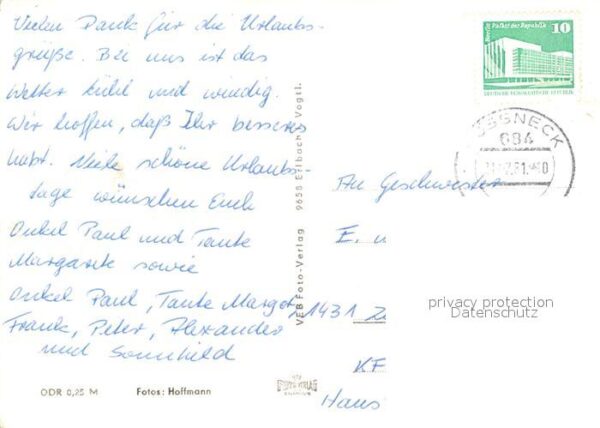 Vielen Dank für die Urlaubs-
grüße. Bei uns ist das
Wetter kühl und windig.
Wir hoffen, daß Ihr besseres
habt. Viele schöne Urlaubs-
tage wünschen Euch
Onkel Paul und Tante
Margarete sowie
Onkel Paul, Tante Margot,
Frank, Peter, Alexander
und Sonnhild
ODR 0,25 M
Fotos: Hoffmann
VEB Foto-Verlag 9658 Erlbach Vogtl.
10
Berlin Palast der Republik
DEUTSCHE DEMOKRATISCHE REPUBLIK
SSNECK
684
An Geschwister
E. u
1431
KF
Haus
privacy protection
Datenschutz